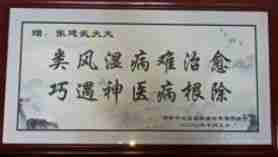 赠：张建武大夫
类风湿病难治愈
巧遇神医病根除